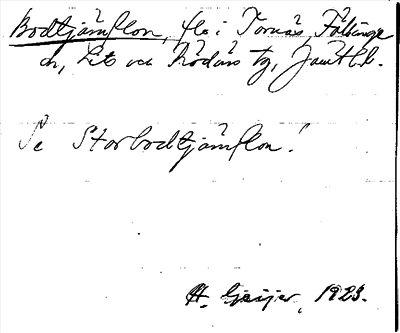 Bodtjärnflon, flo i Tornäs, Fölinge
sn, Lits och Rödöns tg, Jämtl. l.
Se Storbodtjärnflon!
H. Geijer, 1923.